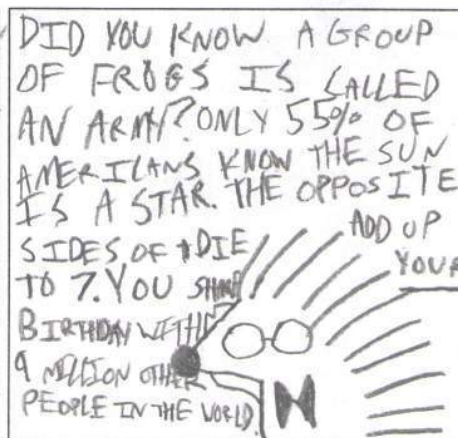 DID YOU KNOW A GROUP
OF FROGS IS CALLED
AN ARMY? ONLY 55% OF
AMERICANS KNOW THE SUN
IS A STAR. THE OPPOSITE
SIDES OF 1 DIE ADD UP
TO 7. YOU SHARE YOUR
BIRTHDAY WITH
9 MILLION OTHER
PEOPLE IN THE WORLD.